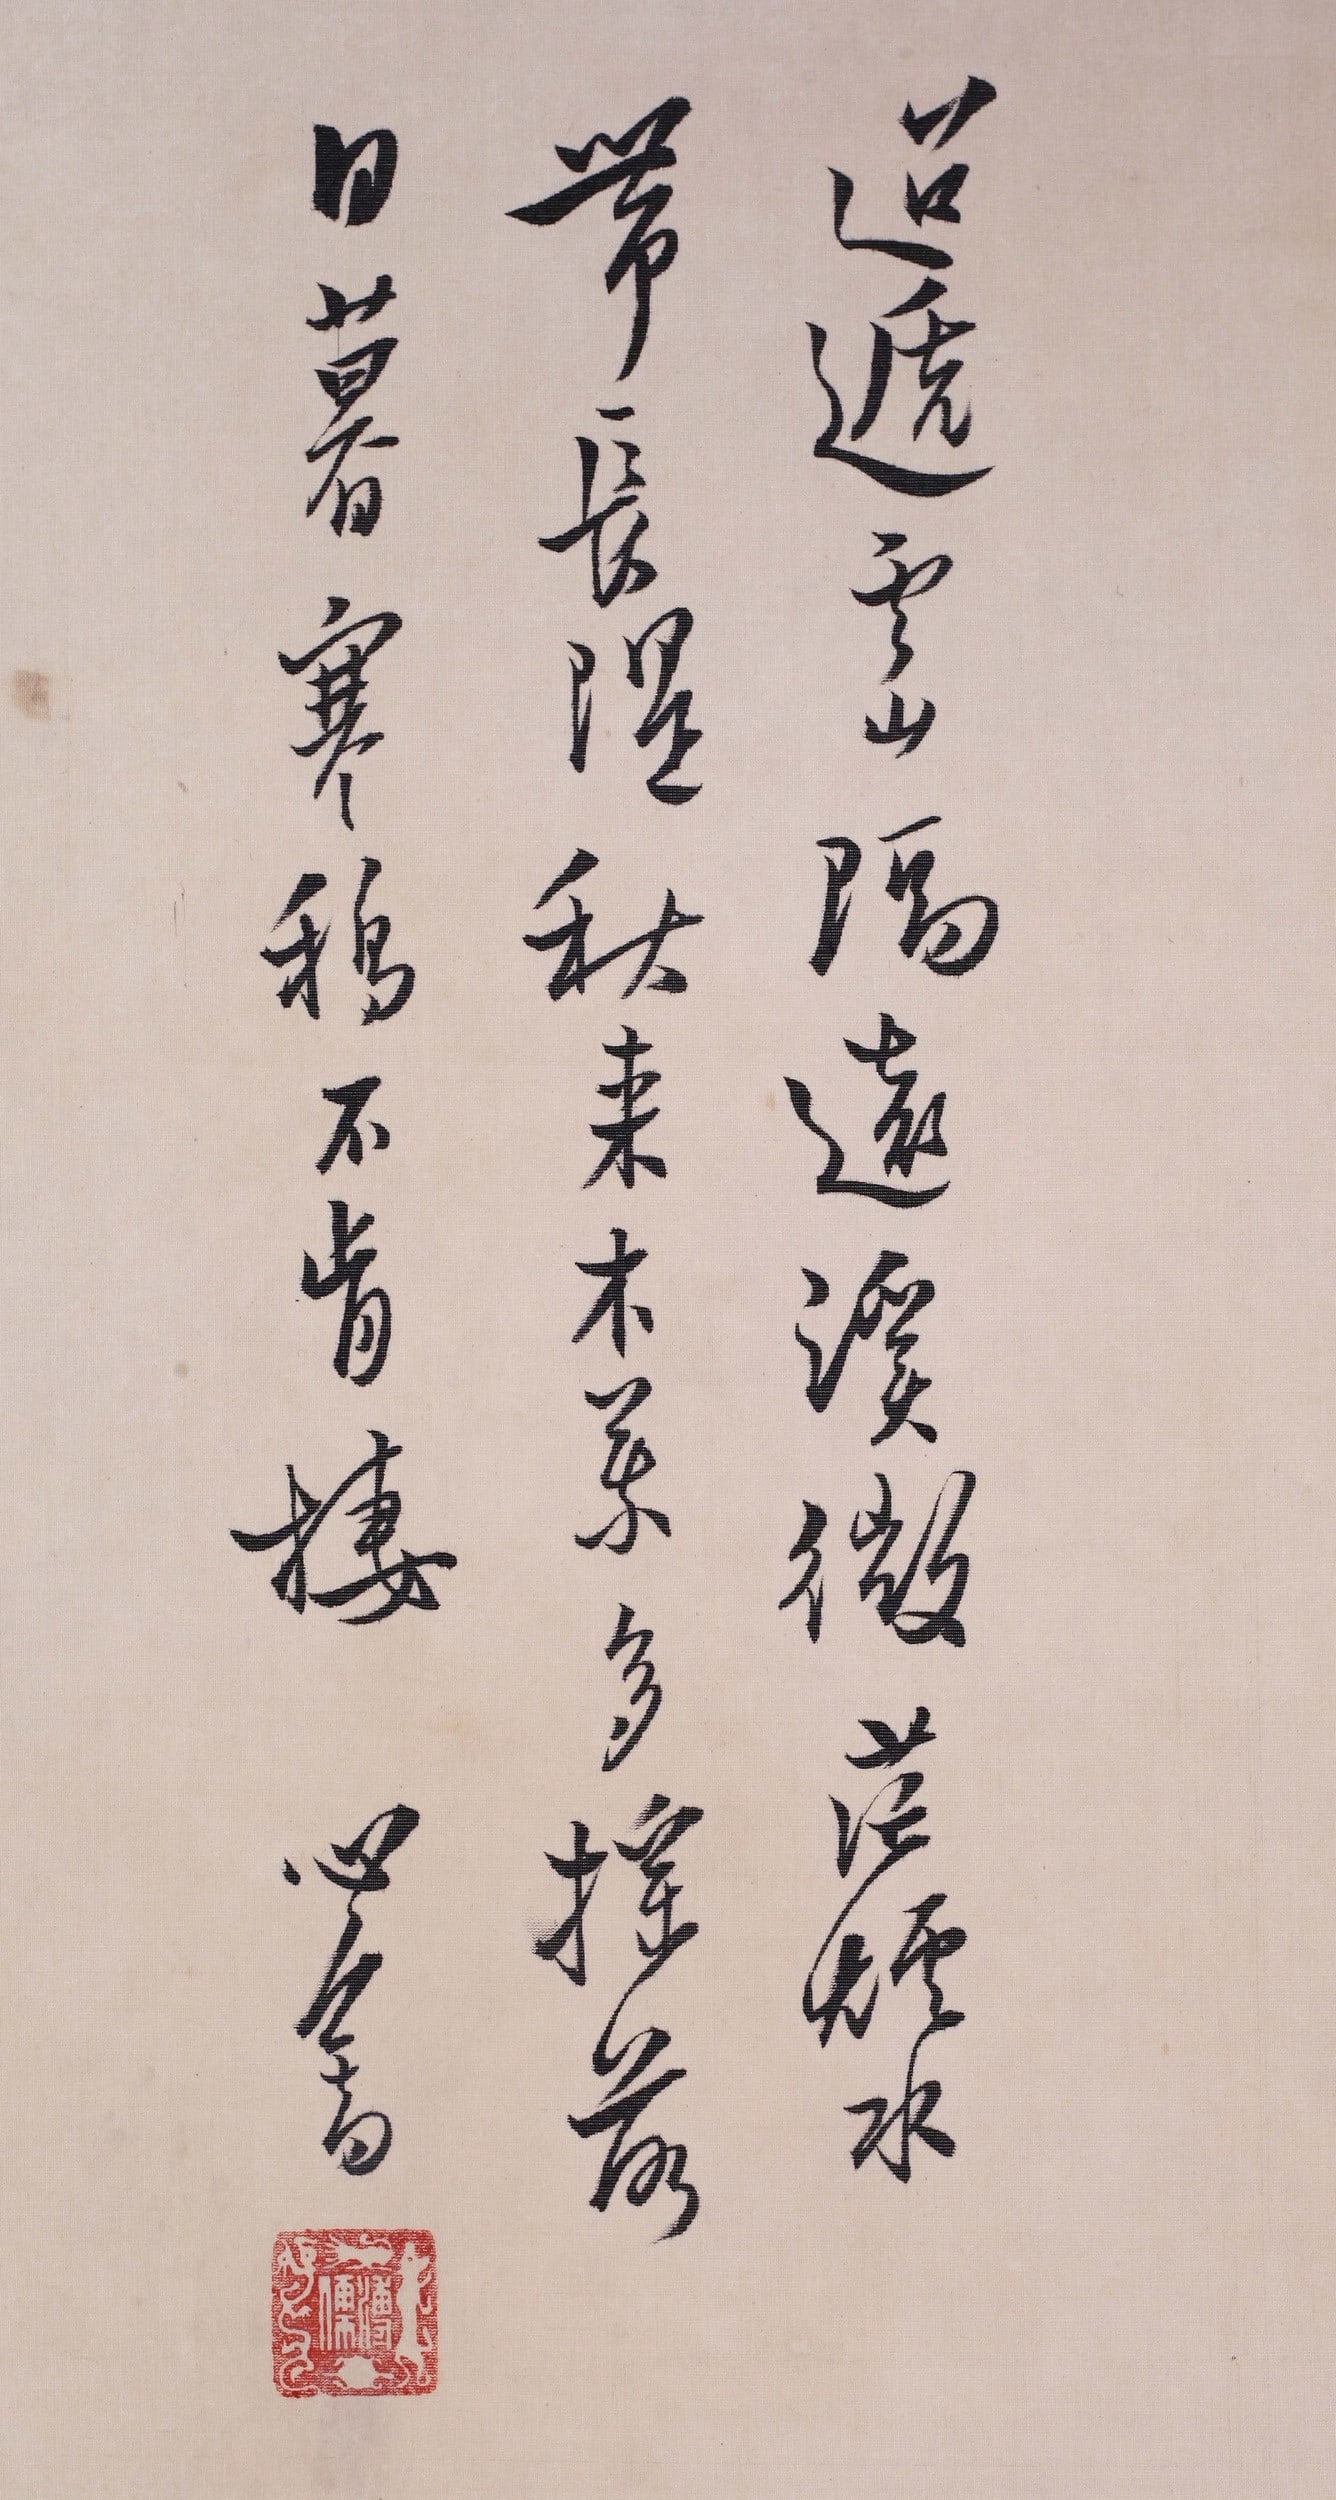 迢遞雲山隔遠溪微茫煙水
帶長隄秋來木葉多搖落
日暮寒鴉不肯棲 心畬
溥儒